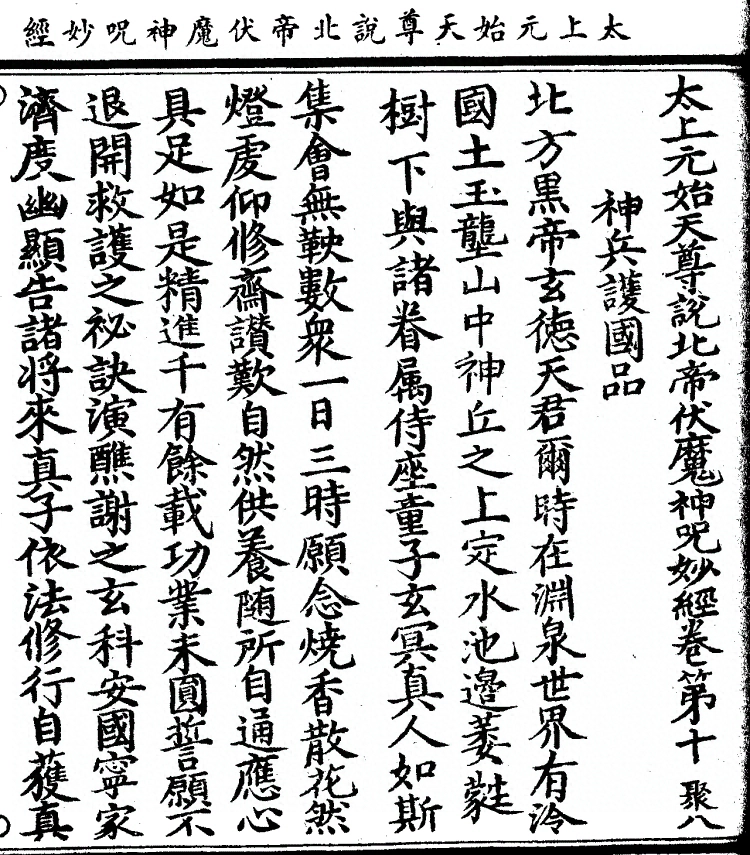 太上元始天尊說北帝伏魔神呪妙經
太上元始天尊說北帝伏魔神呪妙經卷第十 聚八
神兵護國品
北方黑帝玄德天君爾時在淵泉世界有泠
國土玉壟山中神丘之上定水池邊萎蕤
樹下與諸眷属侍座童子玄冥真人如斯
集會無鞅數衆一日三時願念燒香散花然
燈䖏仰修齋讚歎自然供養随所自通應心
具足如是精進千有餘載功業未圓誓願不
退開救護之祕訣演醮謝之玄科安國寧家
濟度幽顯告諸将來真子依法修行自獲真